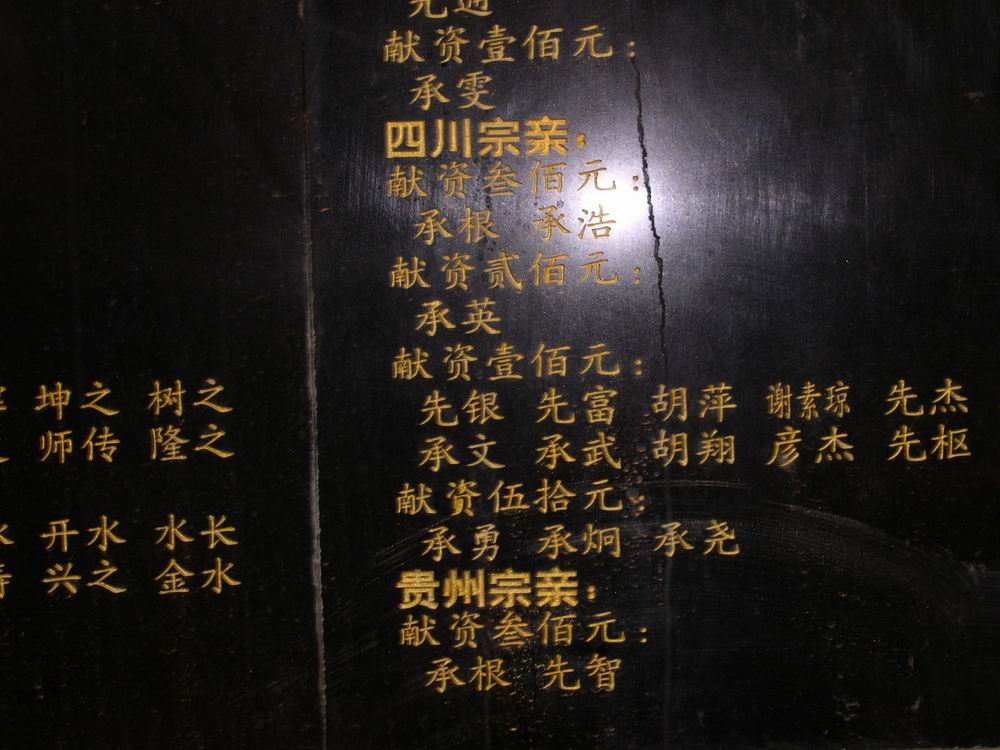 坤之 树之
师传 隆之
开水 水长
兴之 金水
先通
献资壹佰元：
承雯
四川宗亲：
献资叁佰元：
承根 承浩
献资贰佰元：
承英
献资壹佰元：
先银 先富 胡萍 谢素琼 先杰
承文 承武 胡翔 彦杰 先枢
献资伍拾元：
承勇 承炯 承尧
贵州宗亲：
献资叁佰元：
承根 先智